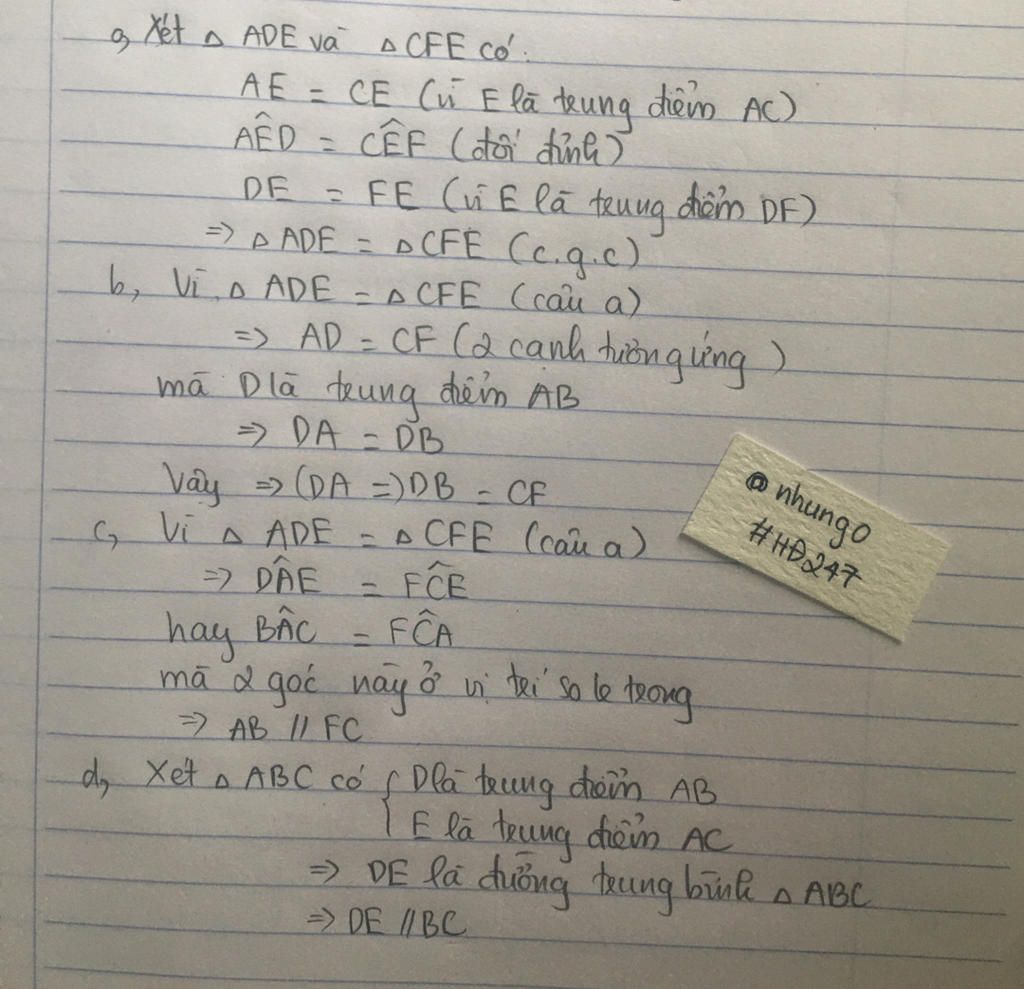 a, Xét △ ADE và △ CFE có:
AE = CE (vì E là trung điểm AC)
AÊD = CÊF (đối đỉnh)
DE = FE (vì E là trung điểm DF)
=> △ ADE = △ CFE (c.g.c)
b, Vì △ ADE = △ CFE (câu a)
=> AD = CF (2 cạnh tương ứng)
mà D là trung điểm AB
=> DA = DB
Vậy => (DA =) DB = CF
c, Vì △ ADE = △ CFE (câu a)
=> DÂE = FĈE
hay BÂC = FĈA
mà 2 góc này ở vị trí so le trong
=> AB // FC
d, Xét △ ABC có { D là trung điểm AB
E là trung điểm AC
=> DE là đường trung bình △ ABC
=> DE // BC
@nhung0
#HĐ247